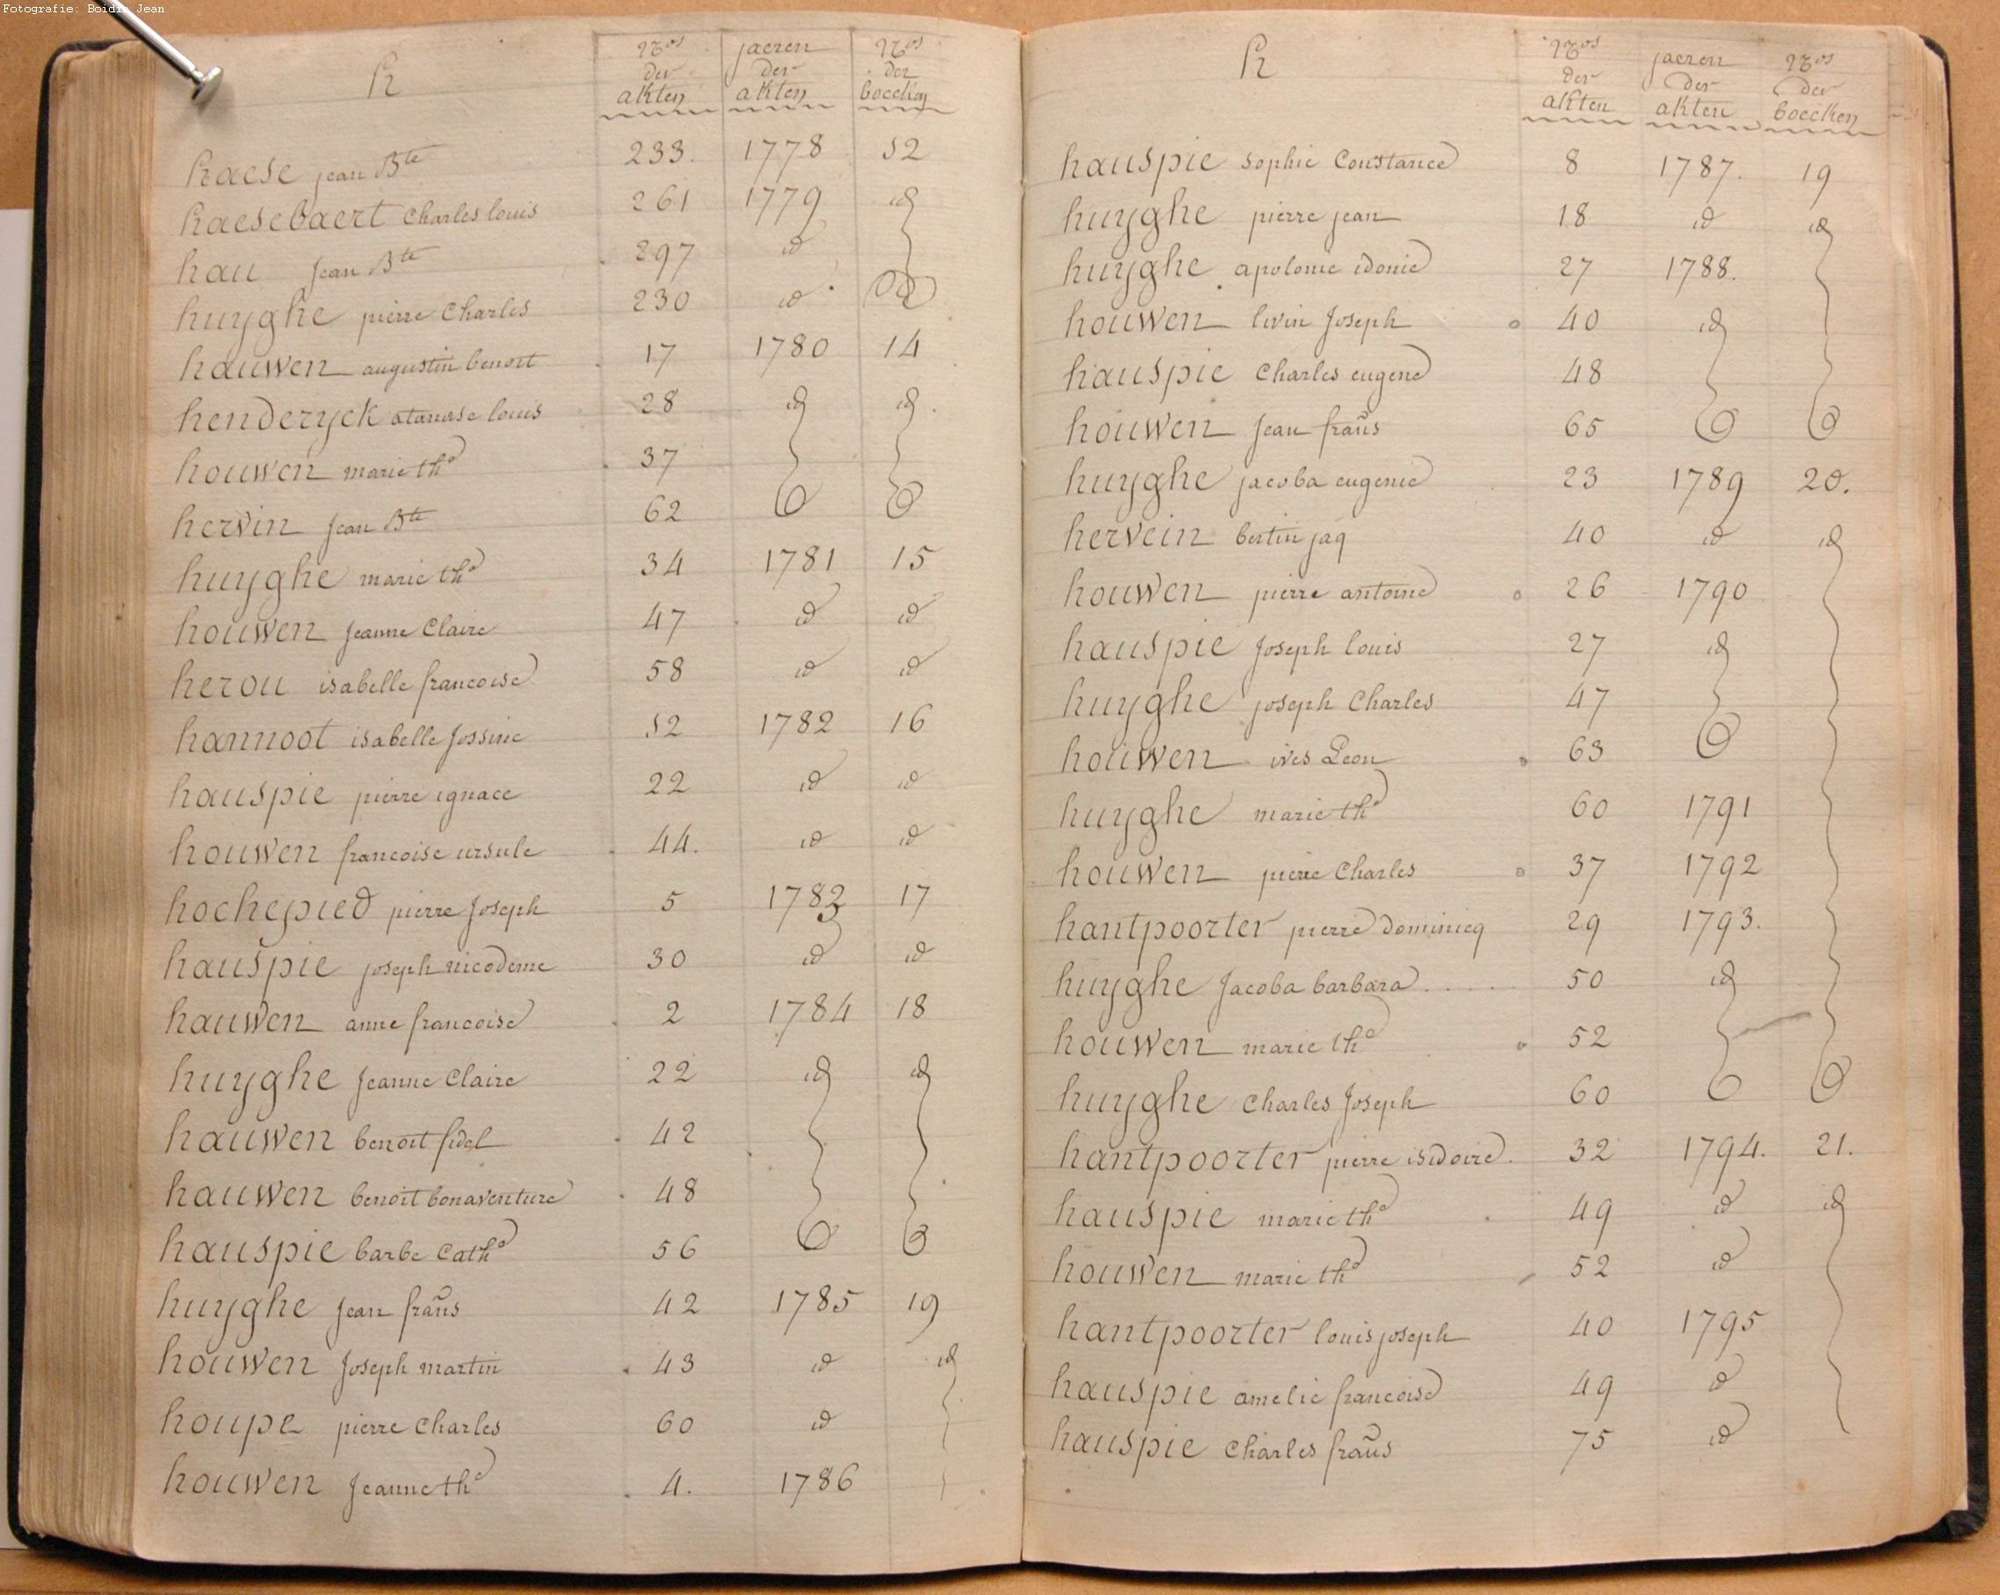 Fotografie: Boidin Jean
h
nros der akten
jaeren der akten
nros der boecken
haese jean Bte 233. 1778 52
haesebaert Charles louis 261 1779 id
hau jean Bte 297 id
huyghe pierre Charles 230 id
hauwen augustin benoit 17 1780 14
henderyck atanase louis 28 id id
houwen marie the 37
hervin jean Bte 62
huyghe marie the 34 1781 15
houwen jeanne Claire 47 id id
herou isabelle francoise 58 id id
hannoot isabelle Jossine 52 1782 16
hauspie pierre ignace 22 id id
houwen francoise ursule 44. id id
hochepied pierre Joseph 5 1783 17
hauspie joseph nicodeme 30 id id
hauwen anne francoise 2 1784 18
huyghe Jeanne Claire 22 id id
hauwen benoit fidel 42
hauwen benoit bonaventure 48
hauspie barbe Cathe 56
huyghe jean frans 42 1785 19
houwen Joseph martin 43 id id
houpe pierre Charles 60 id
houwen Jeanne the 4. 1786
h
nros der akten
jaeren der akten
nros der boecken
hauspie sophie Constance 8 1787. 19
huyghe pierre jean 18 id id
huyghe apolonie idonie 27 1788.
houwen livin Joseph 40 id
hauspie Charles eugene 48
houwen Jean frans 65
huyghe jacoba eugenie 23 1789 20.
hervein bertin jaq 40 id id
houwen pierre antoine 26 1790
hauspie Joseph louis 27 id
huyghe joseph Charles 47
houwen ives Leon 63
huyghe marie the 60 1791
houwen pierre Charles 37 1792
hantpoorter pierre dominicq 29 1793.
huyghe Jacoba barbara .... 50 id
houwen marie the 52
huyghe Charles Joseph 60
hantpoorter pierre isidoire. 32 1794. 21.
hauspie marie the 49 id id
houwen marie the 52 id
hantpoorter louis joseph 40 1795
hauspie amelie francoise 49 id
hauspie Charles frans 75 id